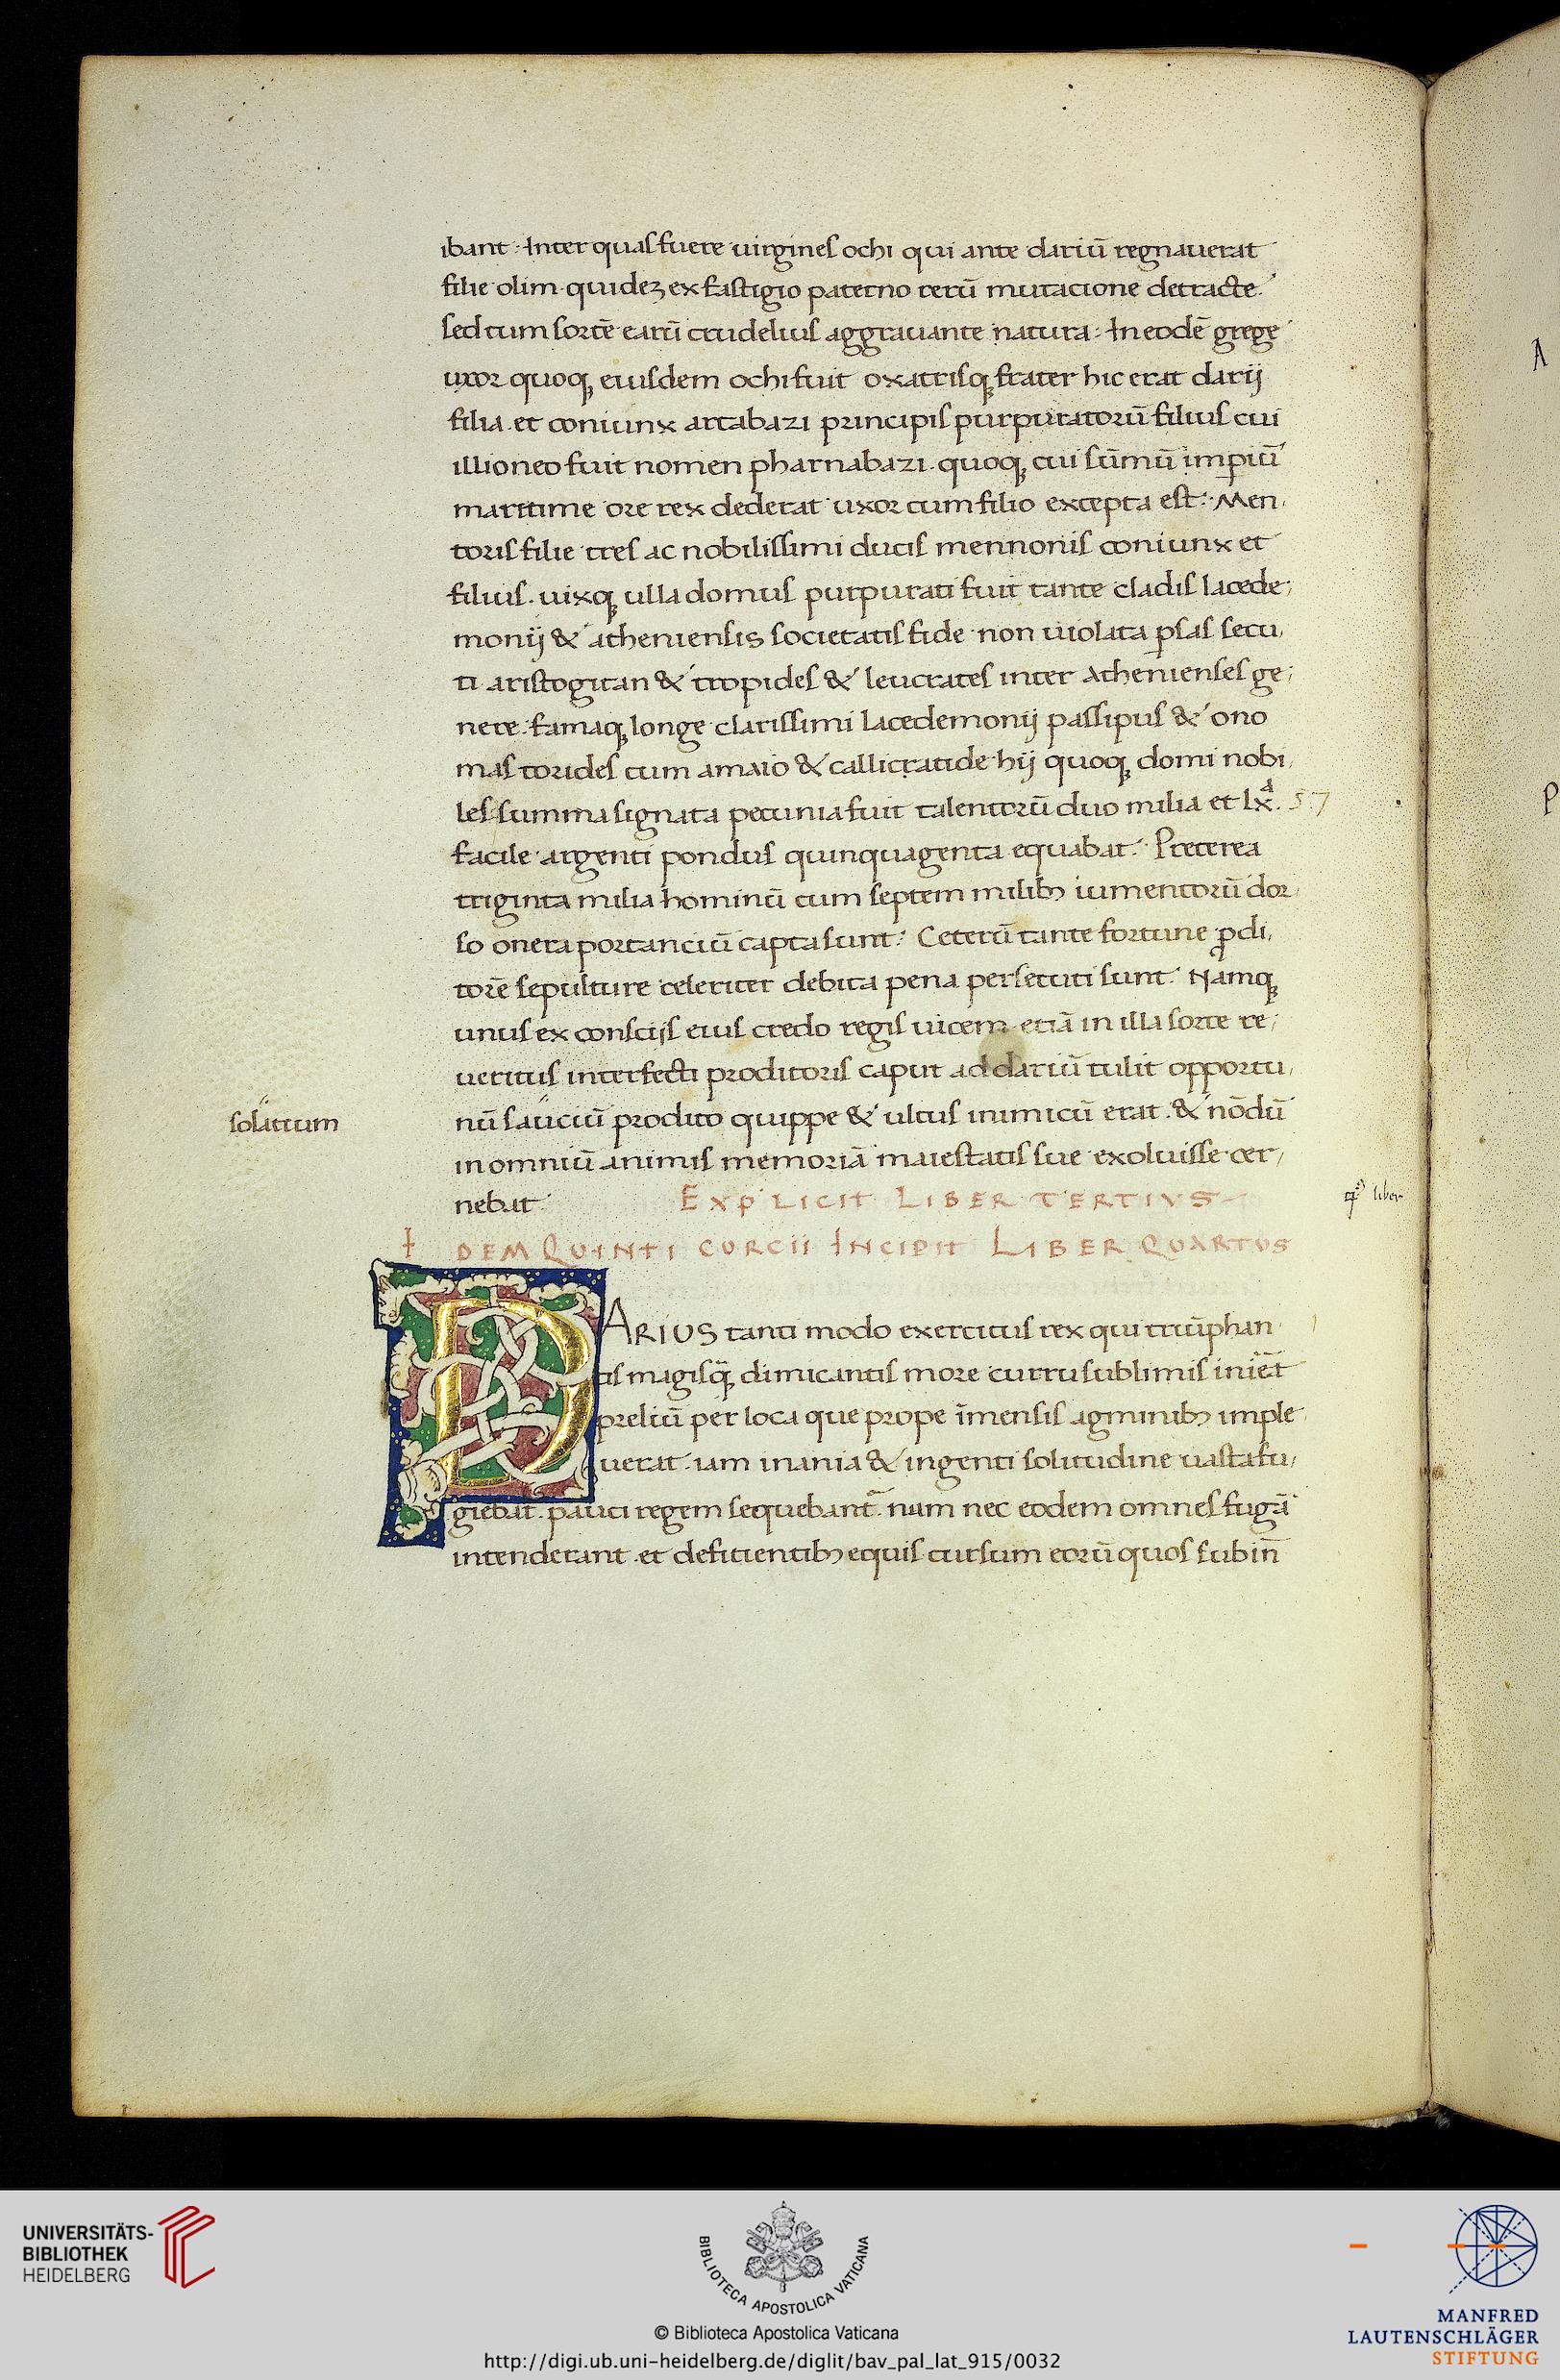 ibant. Inter quas fuere uirgines ochi qui ante dariū regnauerat
filie olim quidez ex fastigio paterno rerū mutacione detracte.
sed tum sortē earū crudelius aggrauante natura. In eodē grege
uxor quoqꝫ eiusdem ochi fuit oxatrisqꝫ frater hic erat darij
filia. et coniunx artabazi principis purpuratorū filius cui
illioneo fuit nomen pharnabazi. quoqꝫ cui sūmū imꝑiū
maritime ore rex dederat uxor cum filio excepta est. Men
toris filie tres ac nobilissimi ducis mennonis coniunx et
filius. uixqꝫ ulla domus purpurati fuit tante cladis lacede
monij & atheniensis societatis fide non uiolata ꝑsas secu
ti aristogitan & tropides & leucrates inter Athenienses ge
nere. famaqꝫ longe clarissimi lacedemonij passipus & ono
mas torides cum amaio & callicratide hij quoqꝫ domi nobi
les summa signata pecunia fuit talentorū duo milia et lx.ᵃ 57
facile argenti pondus quinquagenta equabat. Preterea
triginta milia hominū cum septem milibꝫ iumentorū dor
so onera portanciū capta sunt. Ceterū tante fortune ꝓdi
torē sepulture celeriter debita pena persecuti sunt. Namqꝫ
unus ex consciis eius credo regis uicem etiā in illa sorte re
ueritus interfecti proditoris caput ad dariū tulit opportu
solatium
nū sauciū prodito quippe & ultus inimicū erat. & nōdū
in omniū animis memoriā maiestatis sue exoluisse cer
nebat. EXPLICIT LIBER TERTIVS
liber
IDEM QUINTI CURCII INCIPIT LIBER QUARTUS
DARIUS tanti modo exercitus rex qui triūphan
tis magisq̄ꝫ dimicantis more curru sublimis iniēt
preliū per loca que prope īmensis agminibꝫ imple
uerat. iam inania & ingenti solitudine uasta fu
giebat. pauci regem sequebant̄. nam nec eodem omnes fugā
intenderant. et deficientibꝫ equis cursum eorū quos subin̄
A
P
UNIVERSITÄTS-
BIBLIOTHEK
HEIDELBERG
BIBLIOTECA APOSTOLICA VATICANA
© Biblioteca Apostolica Vaticana
http://digi.ub.uni-heidelberg.de/diglit/bav_pal_lat_915/0032
MANFRED
LAUTENSCHLÄGER
STIFTUNG